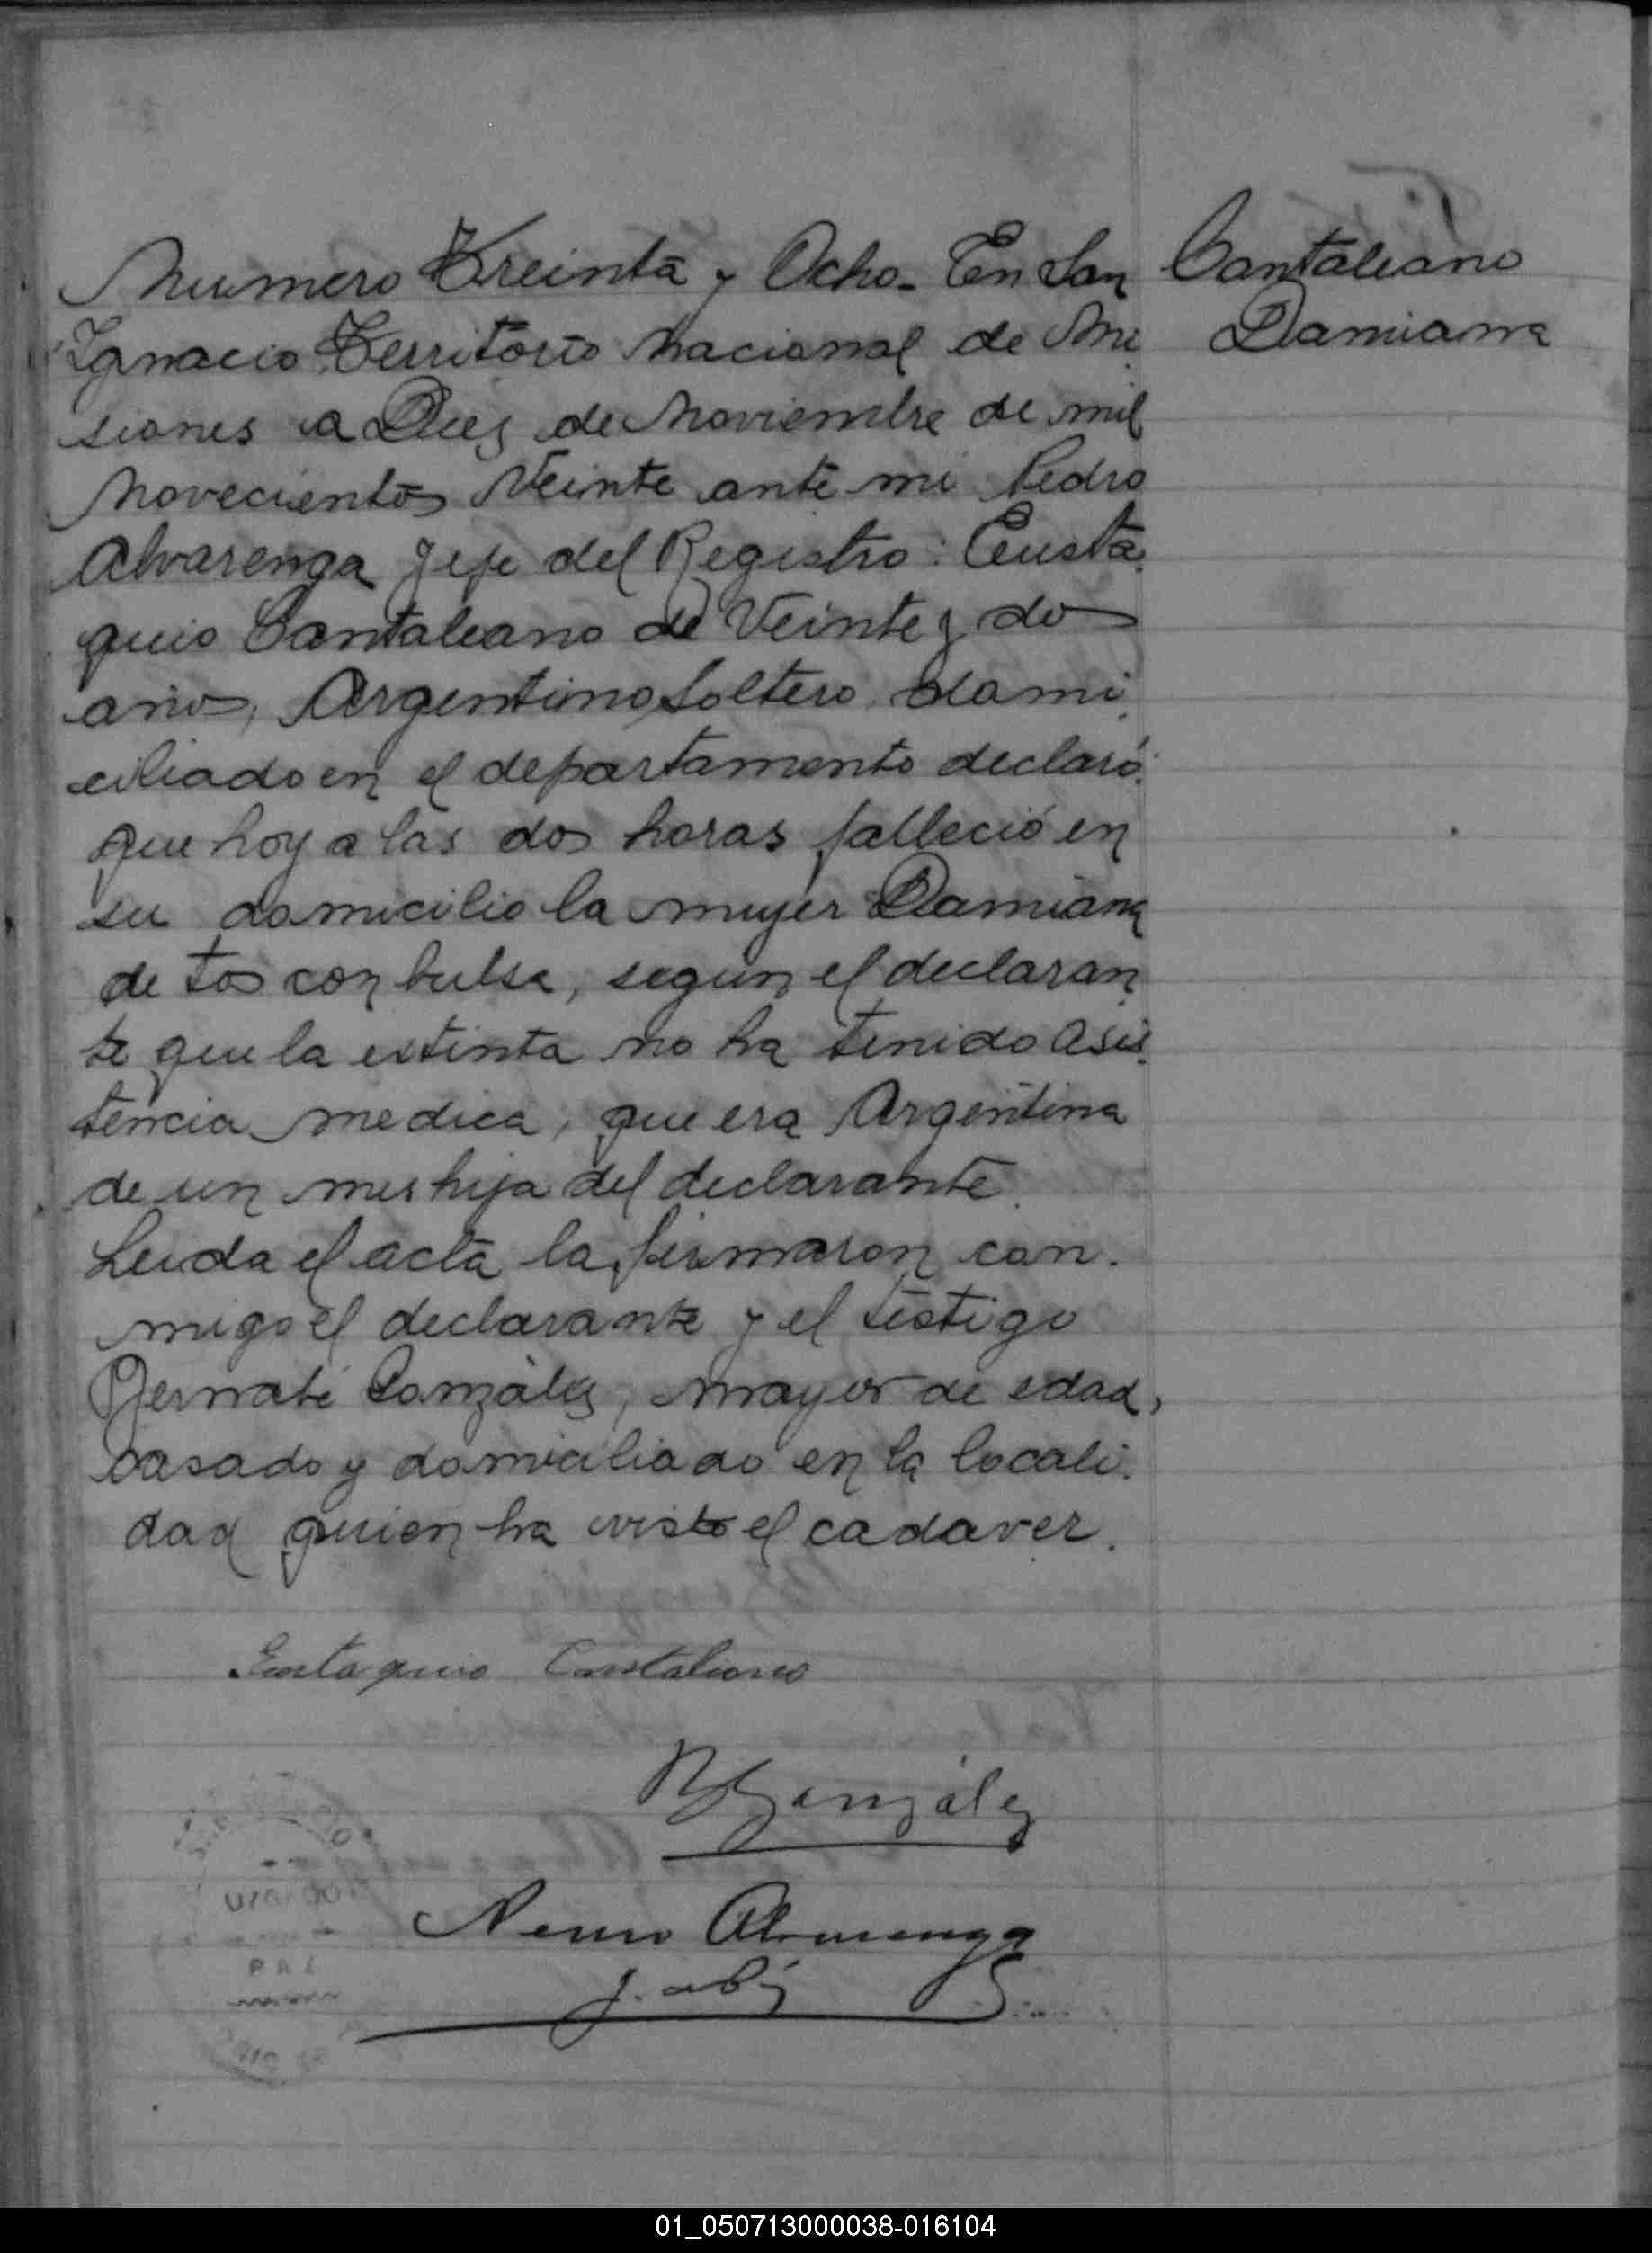 Cantaleano
Damiana
Numero Treinta y Ocho. En San
Ignacio Territorio Nacional de Mi
siones a Diez de Noviembre de mil
Novecientos Veinte ante mi Pedro
Alvarenga Jefe del Registro: Eusta
quio Cantaleano de Veinte y dos
años, Argentino, Soltero, domi
ciliado en el departamento declaró:
que hoy a las dos horas falleció en
su domicilio la mujer Damiana
de tos conbulsa, segun el declaran
te que la extinta no ha tenido asis
tencia medica, que era Argentina
de un mes hija del declarante.
Leida el acta la firmaron con.
migo el declarante y el testigo
Bernabé González, mayor de edad,
casado y domiciliado en la locali.
dad quien ha visto el cadaver.
Eustaquio Cantaleano
B González
Alvarenga
01_050713000038-016104